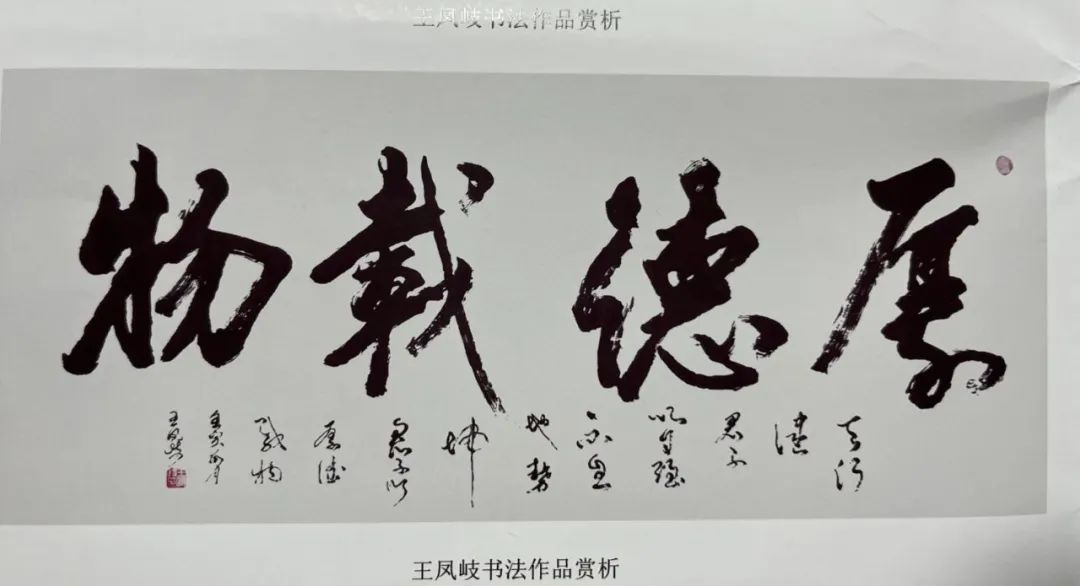 王凤岐书法作品赏析
厚德載物
天行
健
君子
以自强
不息
地勢
坤
君子以
厚德
載物
王凤岐书法作品赏析